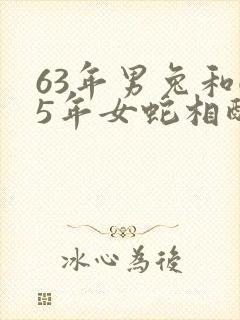 63年男兔和
5年女蛇相
冰心為後